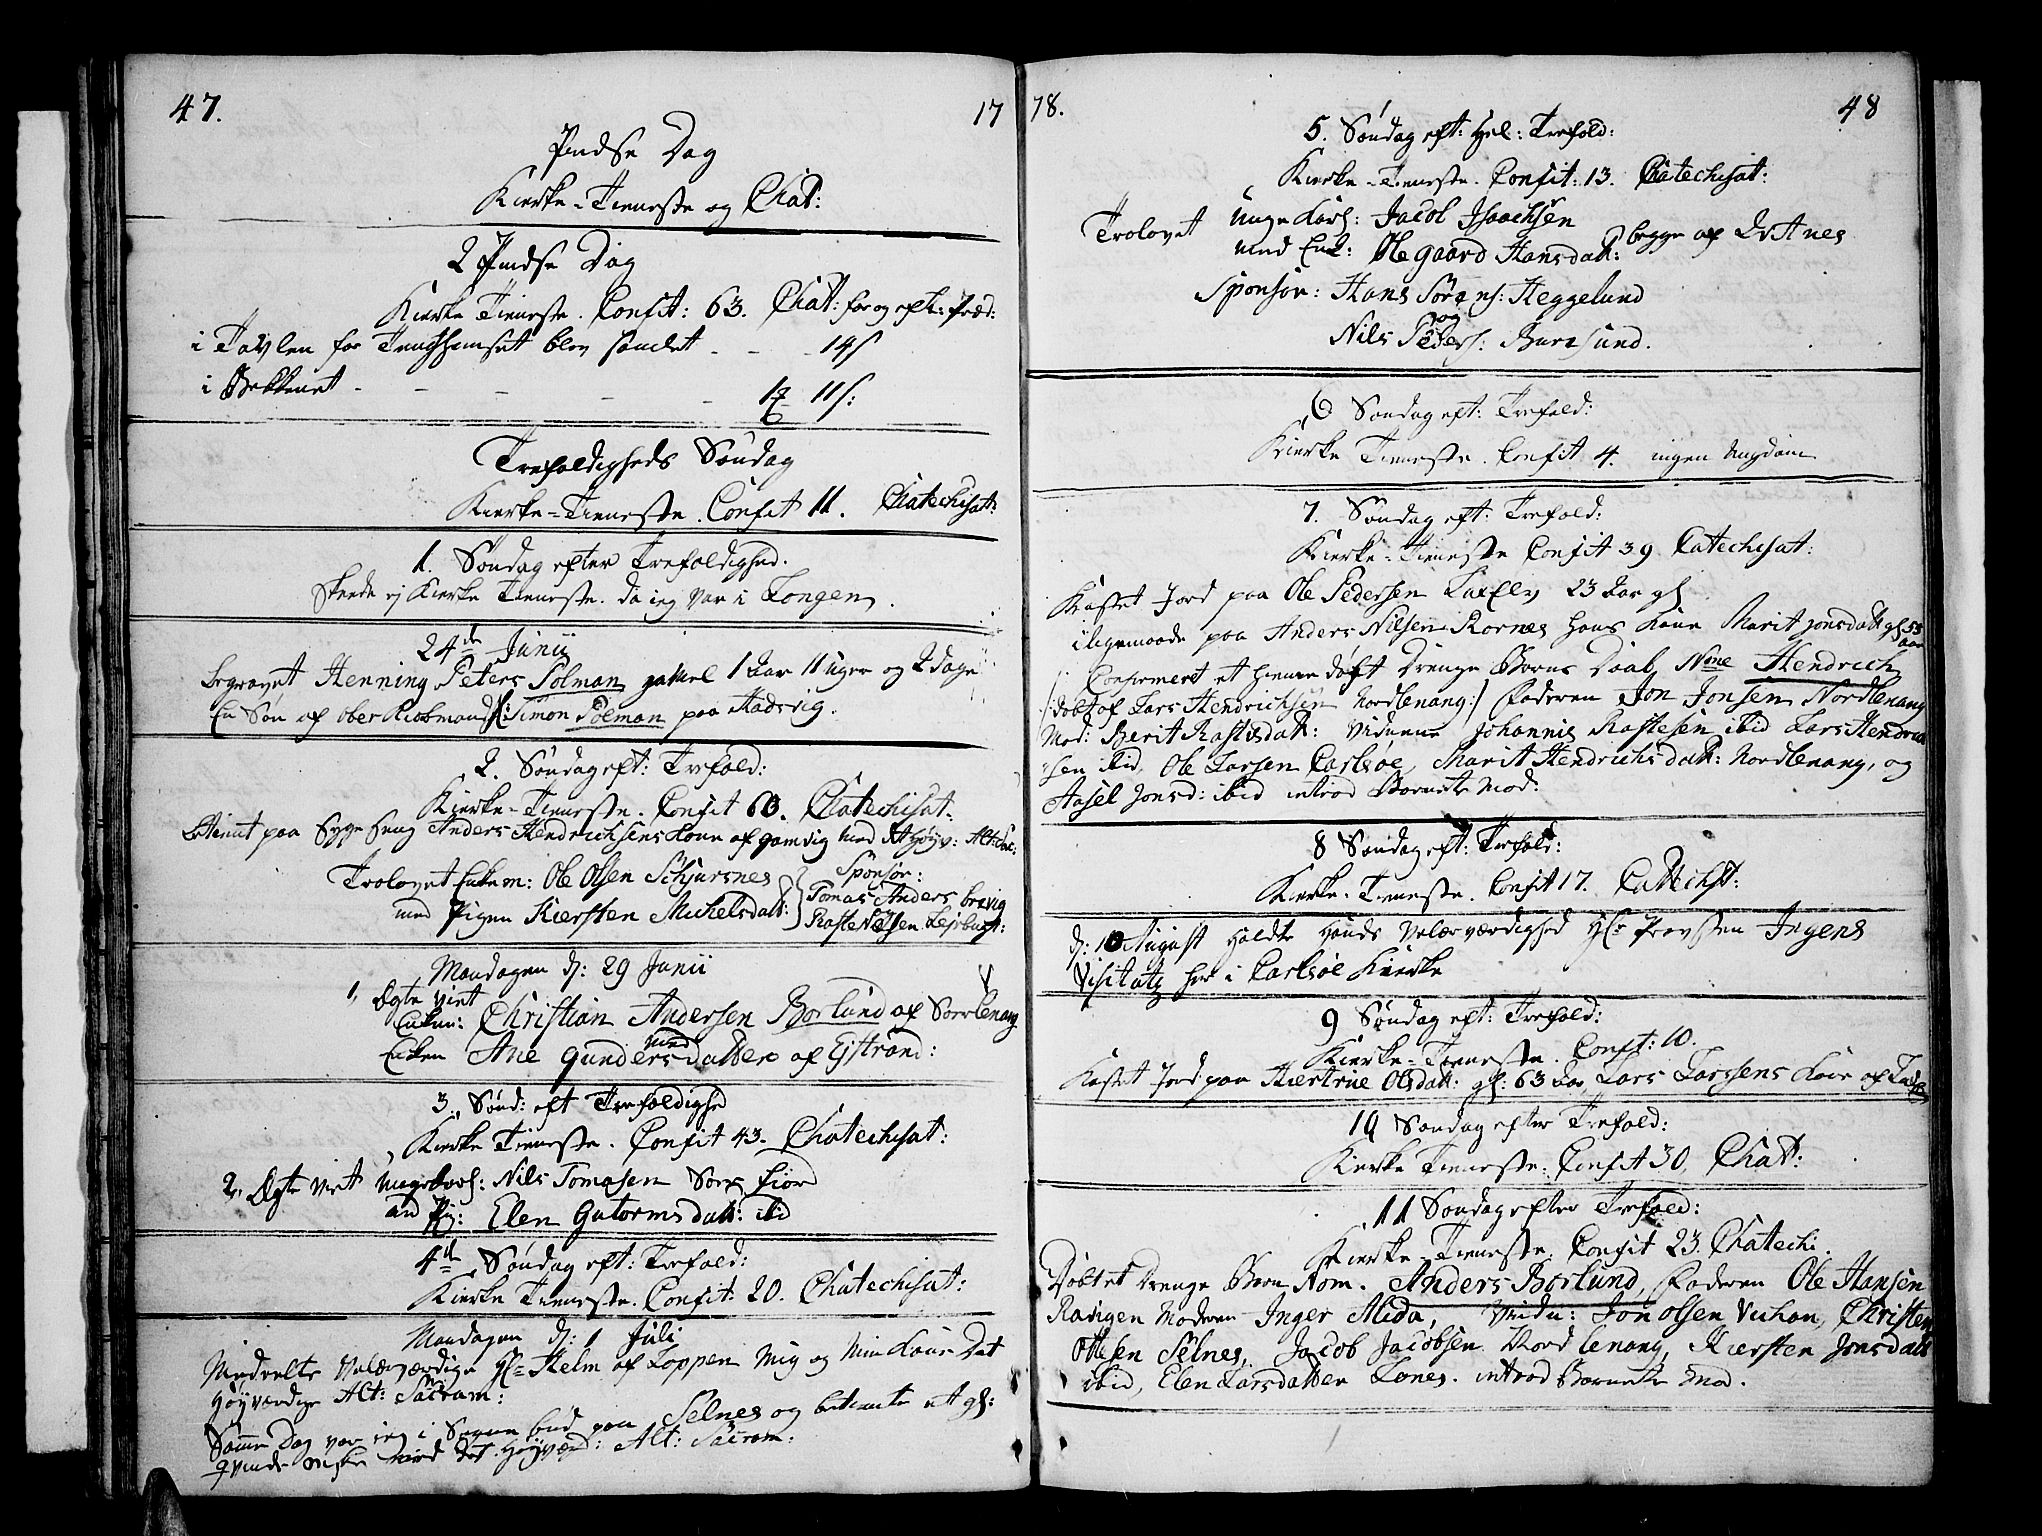 47. 17
Pindse Dag
Kierke-Tieneste og Chat:
2 Pindse Dag
Kierke Tieneste. Confit: 63. Chat: for og eft: Præd:
i Tavlen for Trugshuuset blev samlet - - - 14 s
i Bekkenet - - - - - 11 s:
Trefoldigheds Søndag
Kierke-Tieneste. Confit 11. Chatechisat:
1. Søndag efter Trefoldighed.
Skeede ej Kierke Tieneste. da ieg var i Longen.
24de Junii
begravet Henning Peters Polman gamel 1 Aar 11 uger og 2 dage
En Søn af ober Kiøbmand Hr: Simon Polman paa Hadsvig.
2. Søndag eft: Trefold:
Kierke-Tieneste. Confit 60. Chatechisat.
betient paa Syge Seng Anders Hendrichsens Kone af Gamvig med det Høyv: Alt: Sac:
Trolovet Enkem: Ole Olsen Schjursnes Sponsor:
med Pigen Kiersten Michelsdatt: Tomas Anders: brevig
Raste Nilsen Lejrbugt:
Mandagen d: 29 Junii
1, Ægte viet
Enkem: Christian Andersen Borlund af Sørrlenang
med
Enken Ane Gundersdatter af Ejstrand:
3. Sønd: eft Trefoldighe
Kierke Tieneste. Confit 43. Chatechisat:
2, Ægte viet ungekarl: Nils Tomasen Sørfiord
og Pig: Elen Gutormsdatt: ibid
4de Søndag eft: Trefold:
Kierke Tieneste. Confit: 20. Chatechisat:
Mandagen d: 1 Juli
Meddeelte Velærværdige Hr Helm af Loppen Mig og Min Kone Det
Høyværdige Alt: Sacram:
Samme Dag var ieg i Sogne bud paa Selnes og betiente et gl:
qvinde meske med det Høyværd: Alt: Sacram:
78. 48
5. Søndag eft: Hel: Trefold:
Kierke-Tieneste. Confit: 13. Chatechisat:
Trolovet unge Karl: Jacob Isaachsen
med Enk: Olegaard Hansdatt: begge af Qvitnes
Sponsor: Hans Sørens: Heggelund
og
Nils Peders: Burøsund.
6 Søndag eft: Trefold:
Kierke Tieneste. Confit 4. ingen ungdom
7. Søndag eft: Trefold:
Kierke-Tieneste Confit 39 Catechisat:
Kastet Jord paa Ole Pedersen LaxElv 23 Aar gl
iligemaade paa Anders Nilsen Kornes hans Kone Marit Jonsdatt gl 53
aar
Confirmert et hiemme døbt Drenge Barns Daab, None Hendrich
/: døbt af Lars Hendrichsen Nordlenang:/ Faderen Jon Jonsen Nordlenang
Mod: Berit Rastisdatt: Vidnerne Johannis Rastesen ibid Lars Hendrich
sen ibid, Ole Larsen Carlsøe, Marit Hendrichsdatt: Nordlenang, og
Aasel Jonsd: ibid introd Barnets Mod:
8 Søndag eft: Trefold:
Kierke-Tieneste. Confit 17. Cattechst:
d: 10 August Holdte Hands Velærværdighed Hr Provsten Jngens
Visitatz her i Carlsøe Kierke
9 Søndag eft: Trefold:
Kierke-Tieneste. Confit: 10.
Kastet Jord paa Kiertrue Olsdatt: gl: 63 Aar, Lars Larssens Kone af
10 Søndag efter Trefold:
Kierke Tieneste: Confit 30, Chat:
11 Søndag efter Trefold:
Kierke-Tieneste. Confit 23. Chatechi.
Døbtet Drenge Barn Nom. Anders Borlund, Faderen Ole Hansen
Ravigen Moderen Inger Meda, Vidn: Jon Olsen Vichan, Christen
Ottesen Selnes, Jacob Jacobsen Nordlenang, Kiersten Jonsdatt
ibid, Elen Larsdatter Lones. introd Barnets Mod.